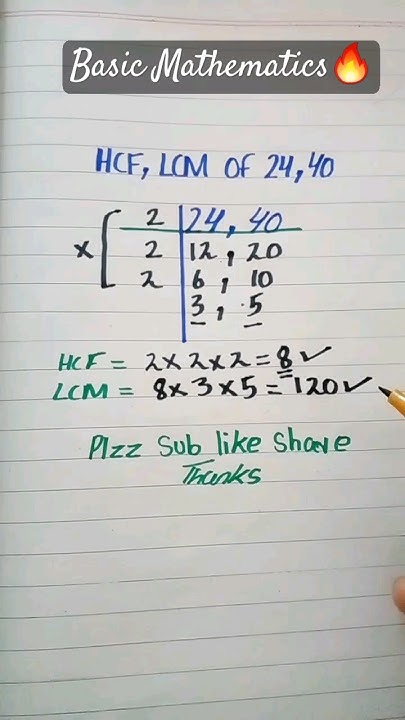 Basic Mathematics🔥
HCF, LCM OF 24,40
2 24, 40
x 2 12, 20
2 6, 10
3, 5
HCF = 2x2x2=8✓
LCM = 8x3x5=120✓
Plzz Sub like Share
Thanks